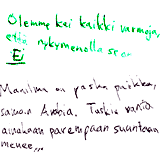 Olemme kai kaikki varmoja,
että nykymenolla se on
Ei
Maailma on paska paikka,
samoin Arabia. Tuskin vaniä
ainakaan parempaan suuntaan
menee...